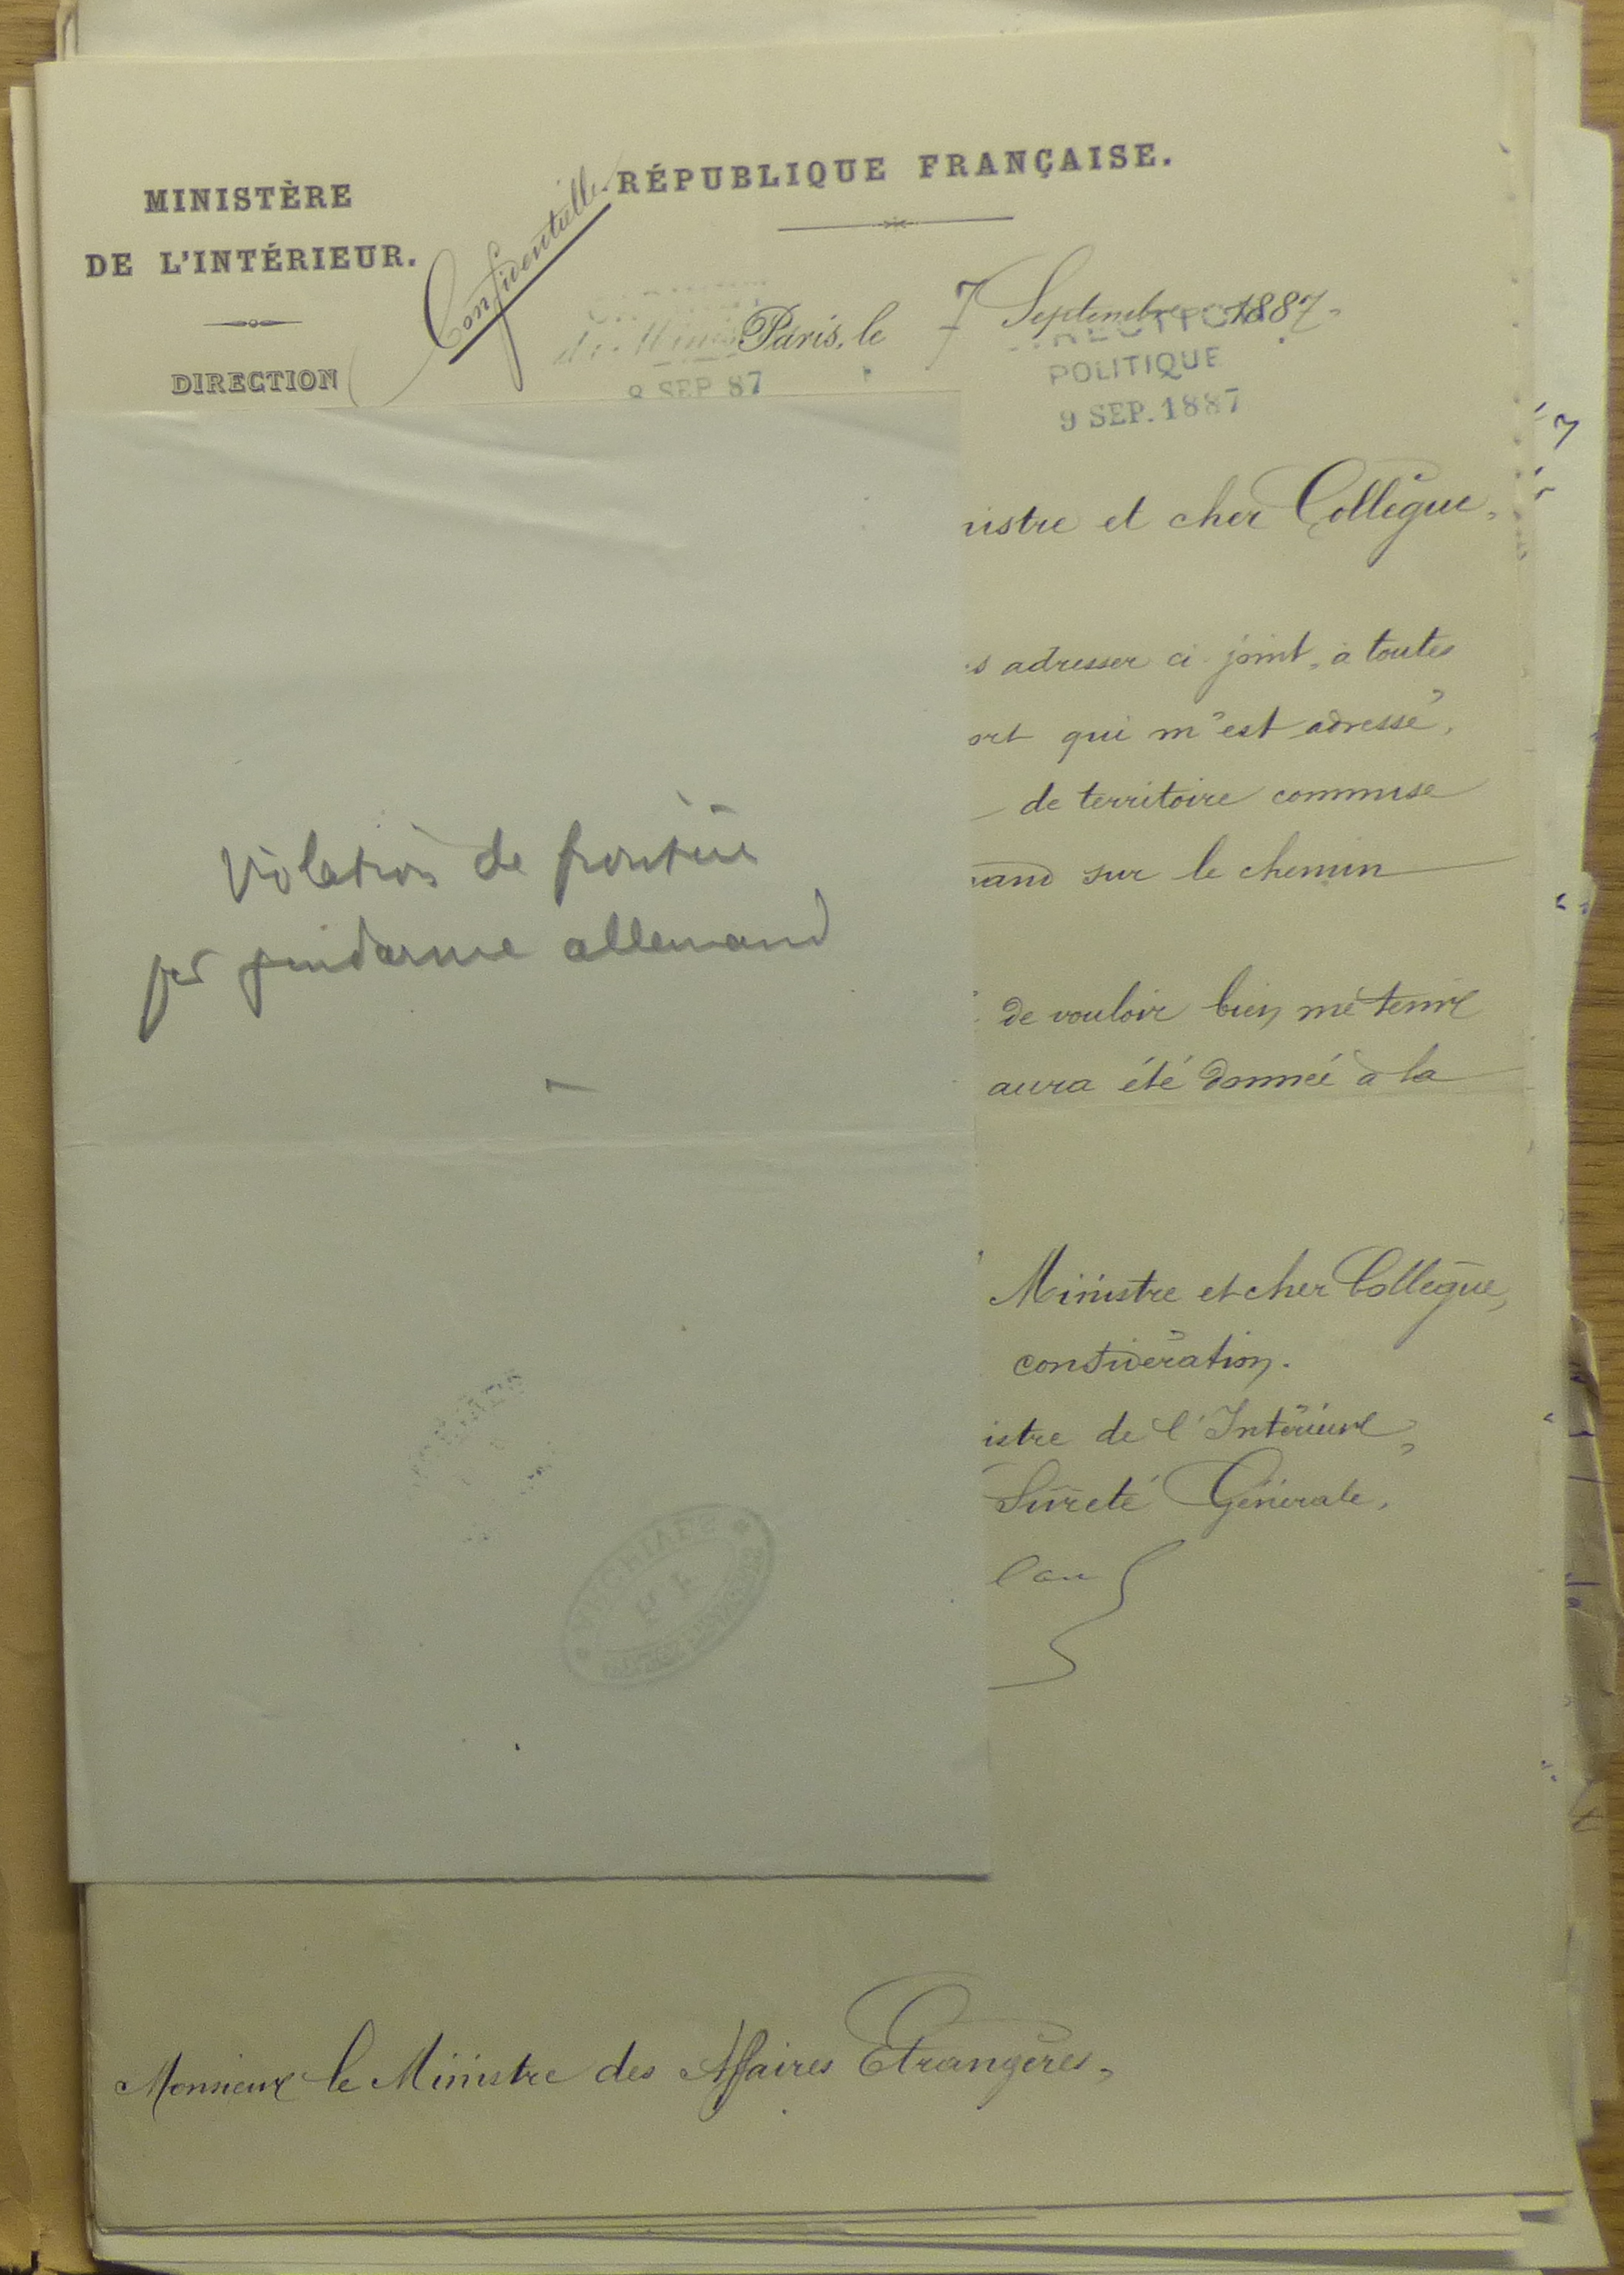 MINISTÈRE
DE L'INTÉRIEUR.
DIRECTION
Confidentielle.
RÉPUBLIQUE FRANÇAISE.
Paris, le 7 Septembre 1887.
8 SEP 87
POLITIQUE
9 SEP. 1887
istre et cher Collègue,
s adresser ci joint, à toutes
ort qui m'est adressé,
de territoire commise
and sur le chemin
de vouloir bien me tenir
aura été donnée à la
Ministre et cher Collègue,
considération.
istre de l'Intérieur,
Sûreté Générale,
Violation de frontière
par gendarme allemand
ARCHIVES
Monsieur le Ministre des Affaires Etrangères,